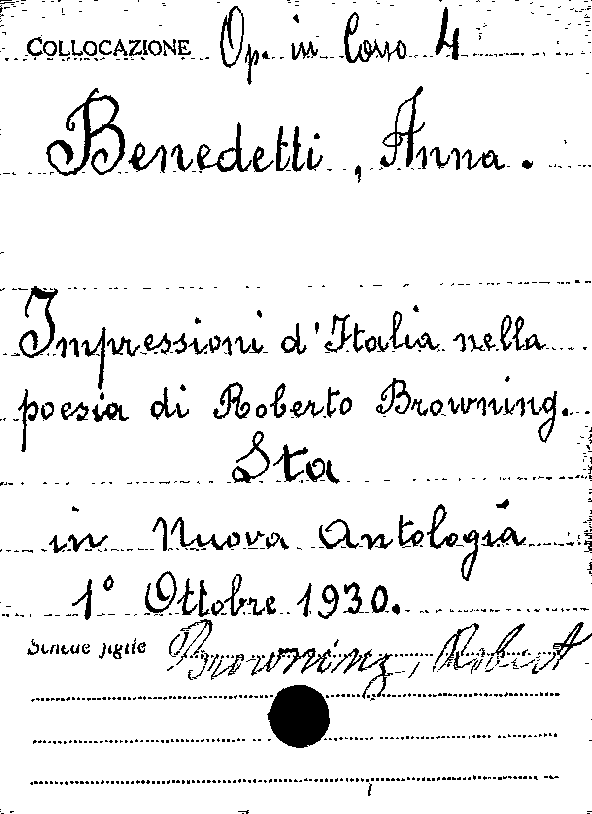 COLLOCAZIONE Op. in Corso 4
Benedetti, Anna.
Impressioni d'Italia nella
poesia di Roberto Browning.
Sta
in Nuova Antologia
1º Ottobre 1930.
Schede figlie Browning, Robert